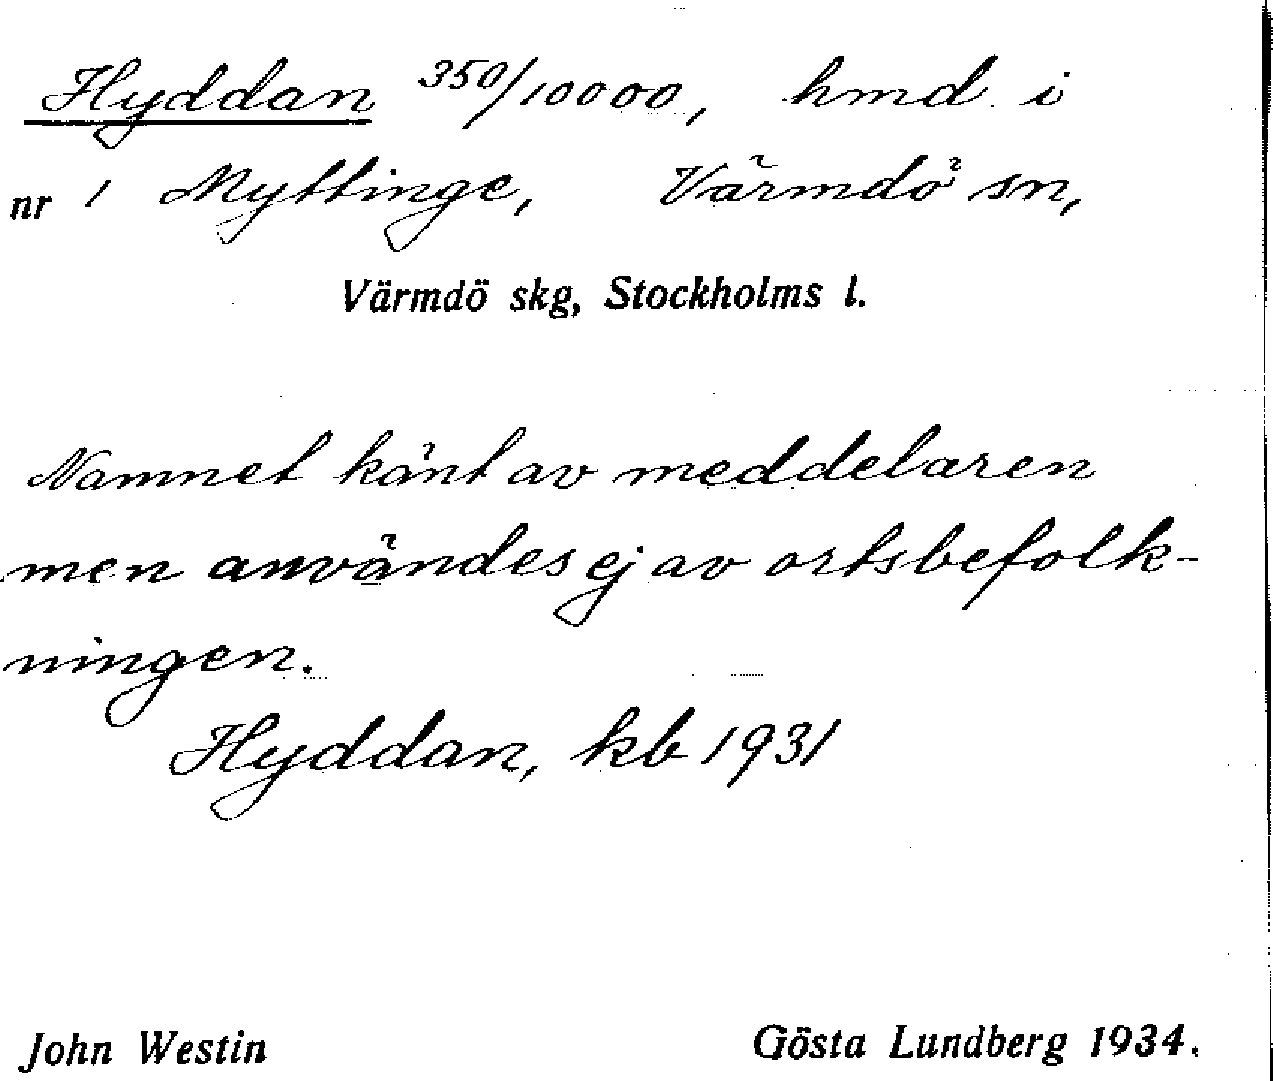 Hyddan 350/10000, hmd i
nr 1 Myttinge, Värmdö sn,
Värmdö skg, Stockholms l.
Namnet känt av meddelaren
men användes ej av ortsbefolk-
ningen.
Hyddan, kb 1931
John Westin Gösta Lundberg 1934.